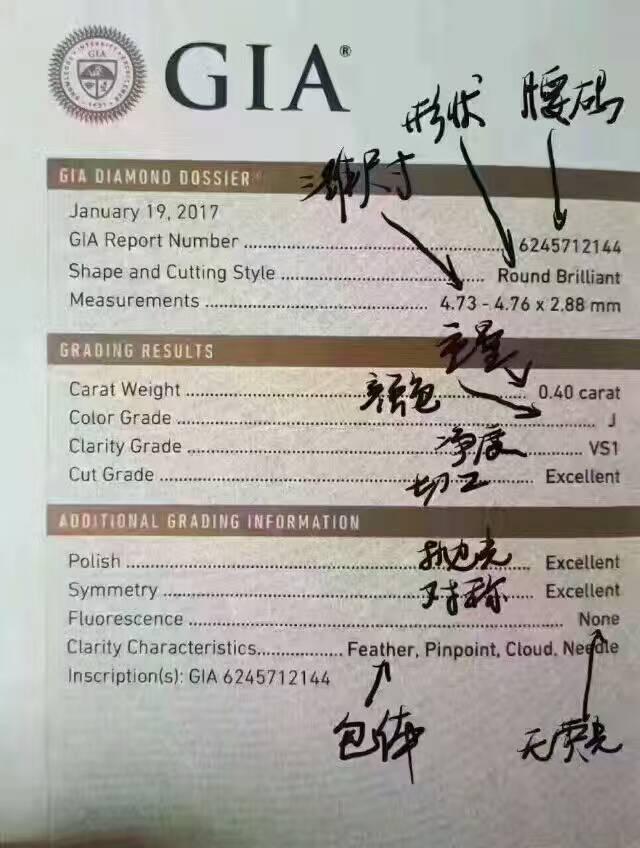 GIA®
形状 腰码
三维尺寸
GIA DIAMOND DOSSIER®
January 19, 2017
GIA Report Number 6245712144
Shape and Cutting Style Round Brilliant
Measurements 4.73 - 4.76 x 2.88 mm
GRADING RESULTS
Carat Weight 0.40 carat
颜色
Color Grade J
Clarity Grade 净度 VS1
Cut Grade 切工 Excellent
ADDITIONAL GRADING INFORMATION
Polish 抛光 Excellent
Symmetry 对称 Excellent
Fluorescence None
Clarity Characteristics Feather, Pinpoint, Cloud, Needle
Inscription(s): GIA 6245712144
包体 无荧光